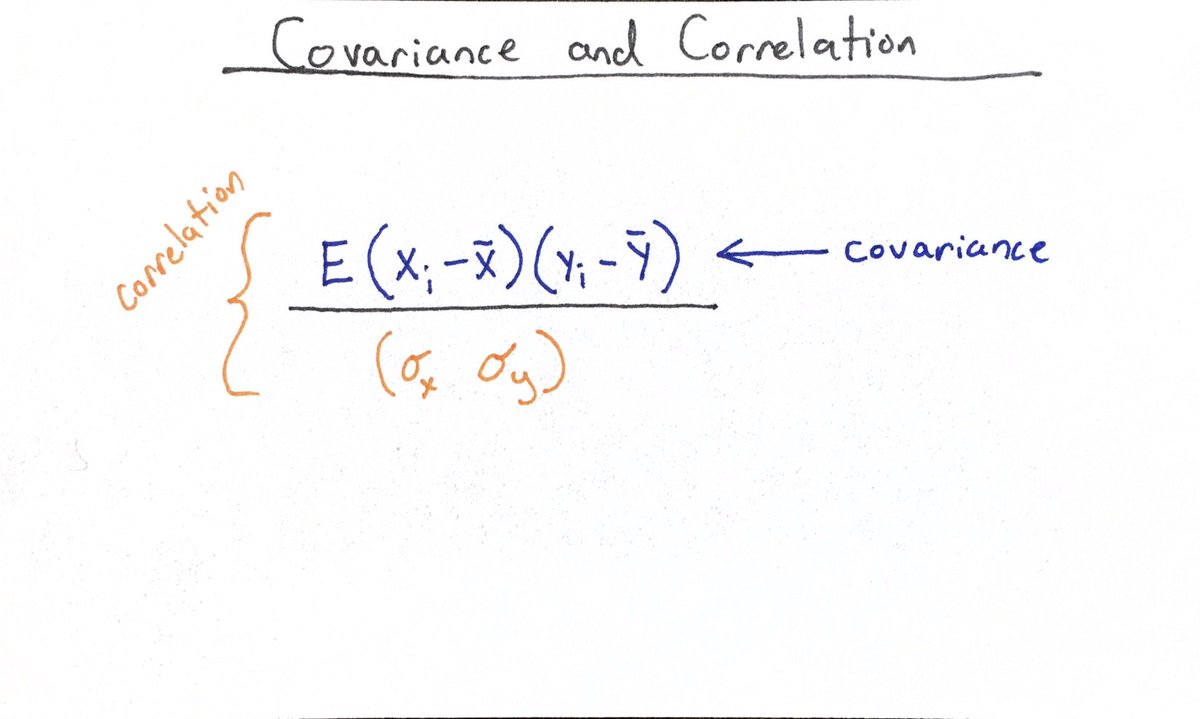 Covariance and Correlation
correlation
E(xᵢ-x̄)(yᵢ-ȳ) ← covariance
(σₓ σᵧ)